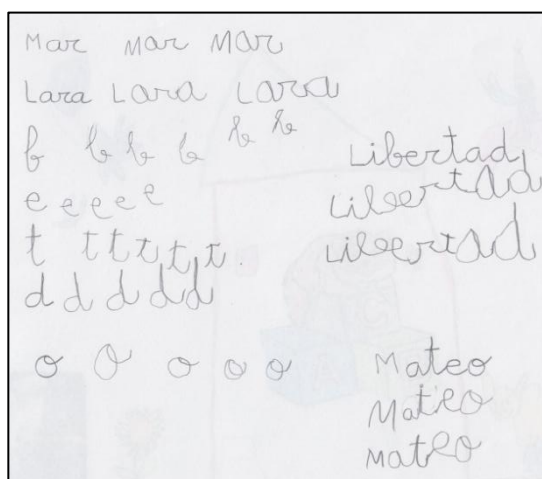 Mar Mar Mar
Lara Lara Lara
b b b b b b
Libertad
e e e e e
Libertad
t t t t t t
Libertad
d d d d d
o o o o o
Mateo
Mateo
Mateo